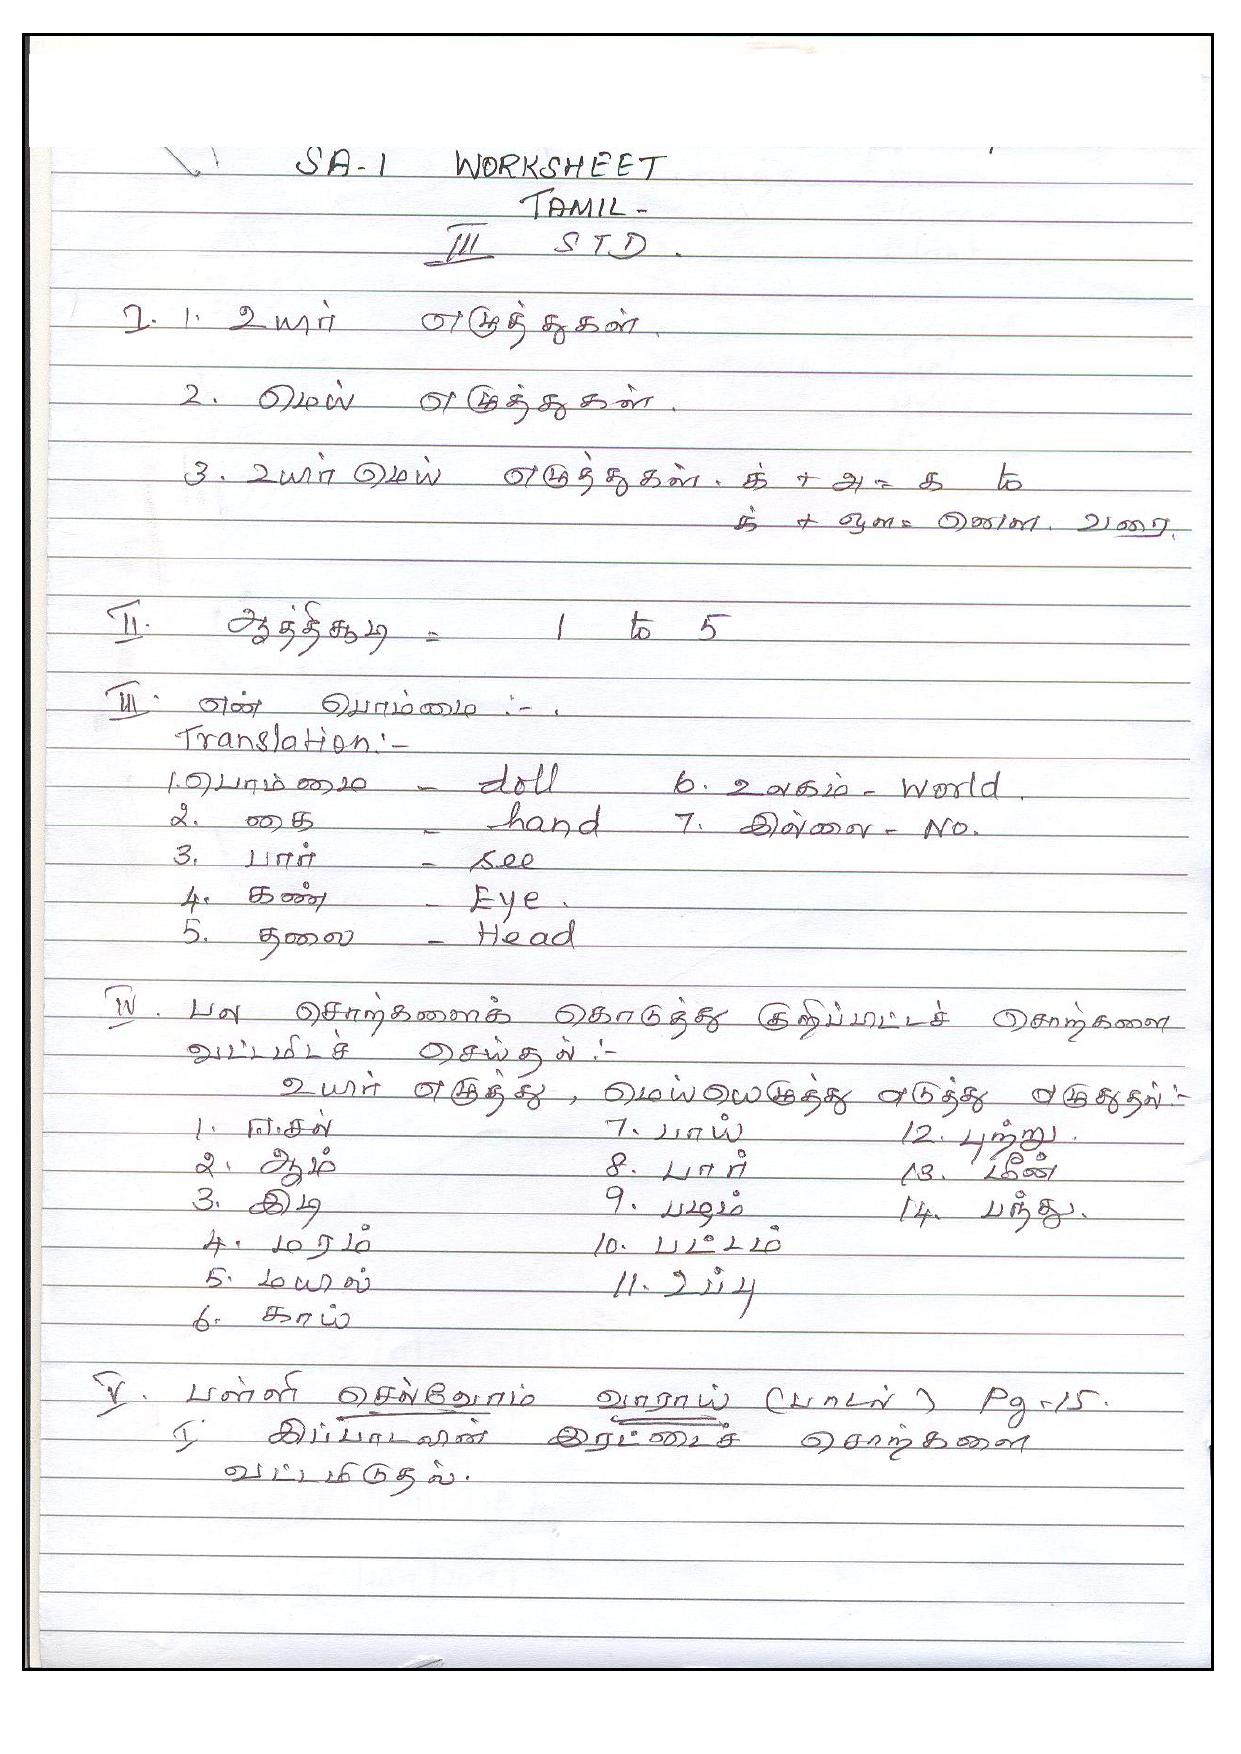 SA-1 WORKSHEET
TAMIL -
III STD.
I. 1. உயிர் எழுத்துகள்.
2. மெய் எழுத்துகள்.
3. உயிர் மெய் எழுத்துகள். க் + அ = க to
க் + ஔ = கௌ. வரை.
II. ஆத்திசூடி = 1 to 5
III. என் பொம்மை :- .
Translation:-
1. பொம்மை - doll 6. உலகம் - World.
2. கை - hand 7. இல்லை - No.
3. பார் - see
4. கண் - Eye.
5. தலை - Head
IV. பல சொற்களைக் கொடுத்து குறிப்பிட்டச் சொற்களை
வட்டமிடச் செய்தல் :-
உயிர் எழுத்து, மெய்யெழுத்து எடுத்து எழுதுதல் :-
1. ஈ.சல் 7. பாய் 12. புற்று.
2. ஆம் 8. பார் 13. மீன்
3. இடி 9. பழம் 14. பந்து.
4. மரம் 10. பட்டம்
5. மயில் 11. உப்பு
6. காய்
V. பள்ளி செல்வோம் வாராய் (பாடல்) Pg-15.
I இப்பாடலின் இரட்டைச் சொற்களை
வட்டமிடுதல்.